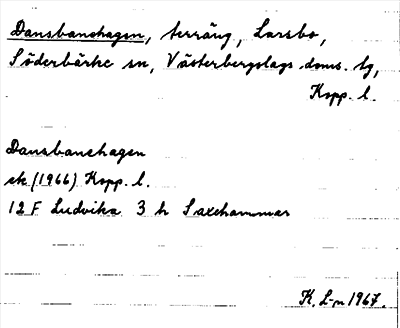 Dansbanehagen, terräng, Larsbo,
Söderbärke sn, Västerbergslags doms. tg,
Kopp. l.
Dansbanehagen
ek (1966) Kopp. l.
12 F Ludvika 3 h Saxehammar
K. L-n 1967.